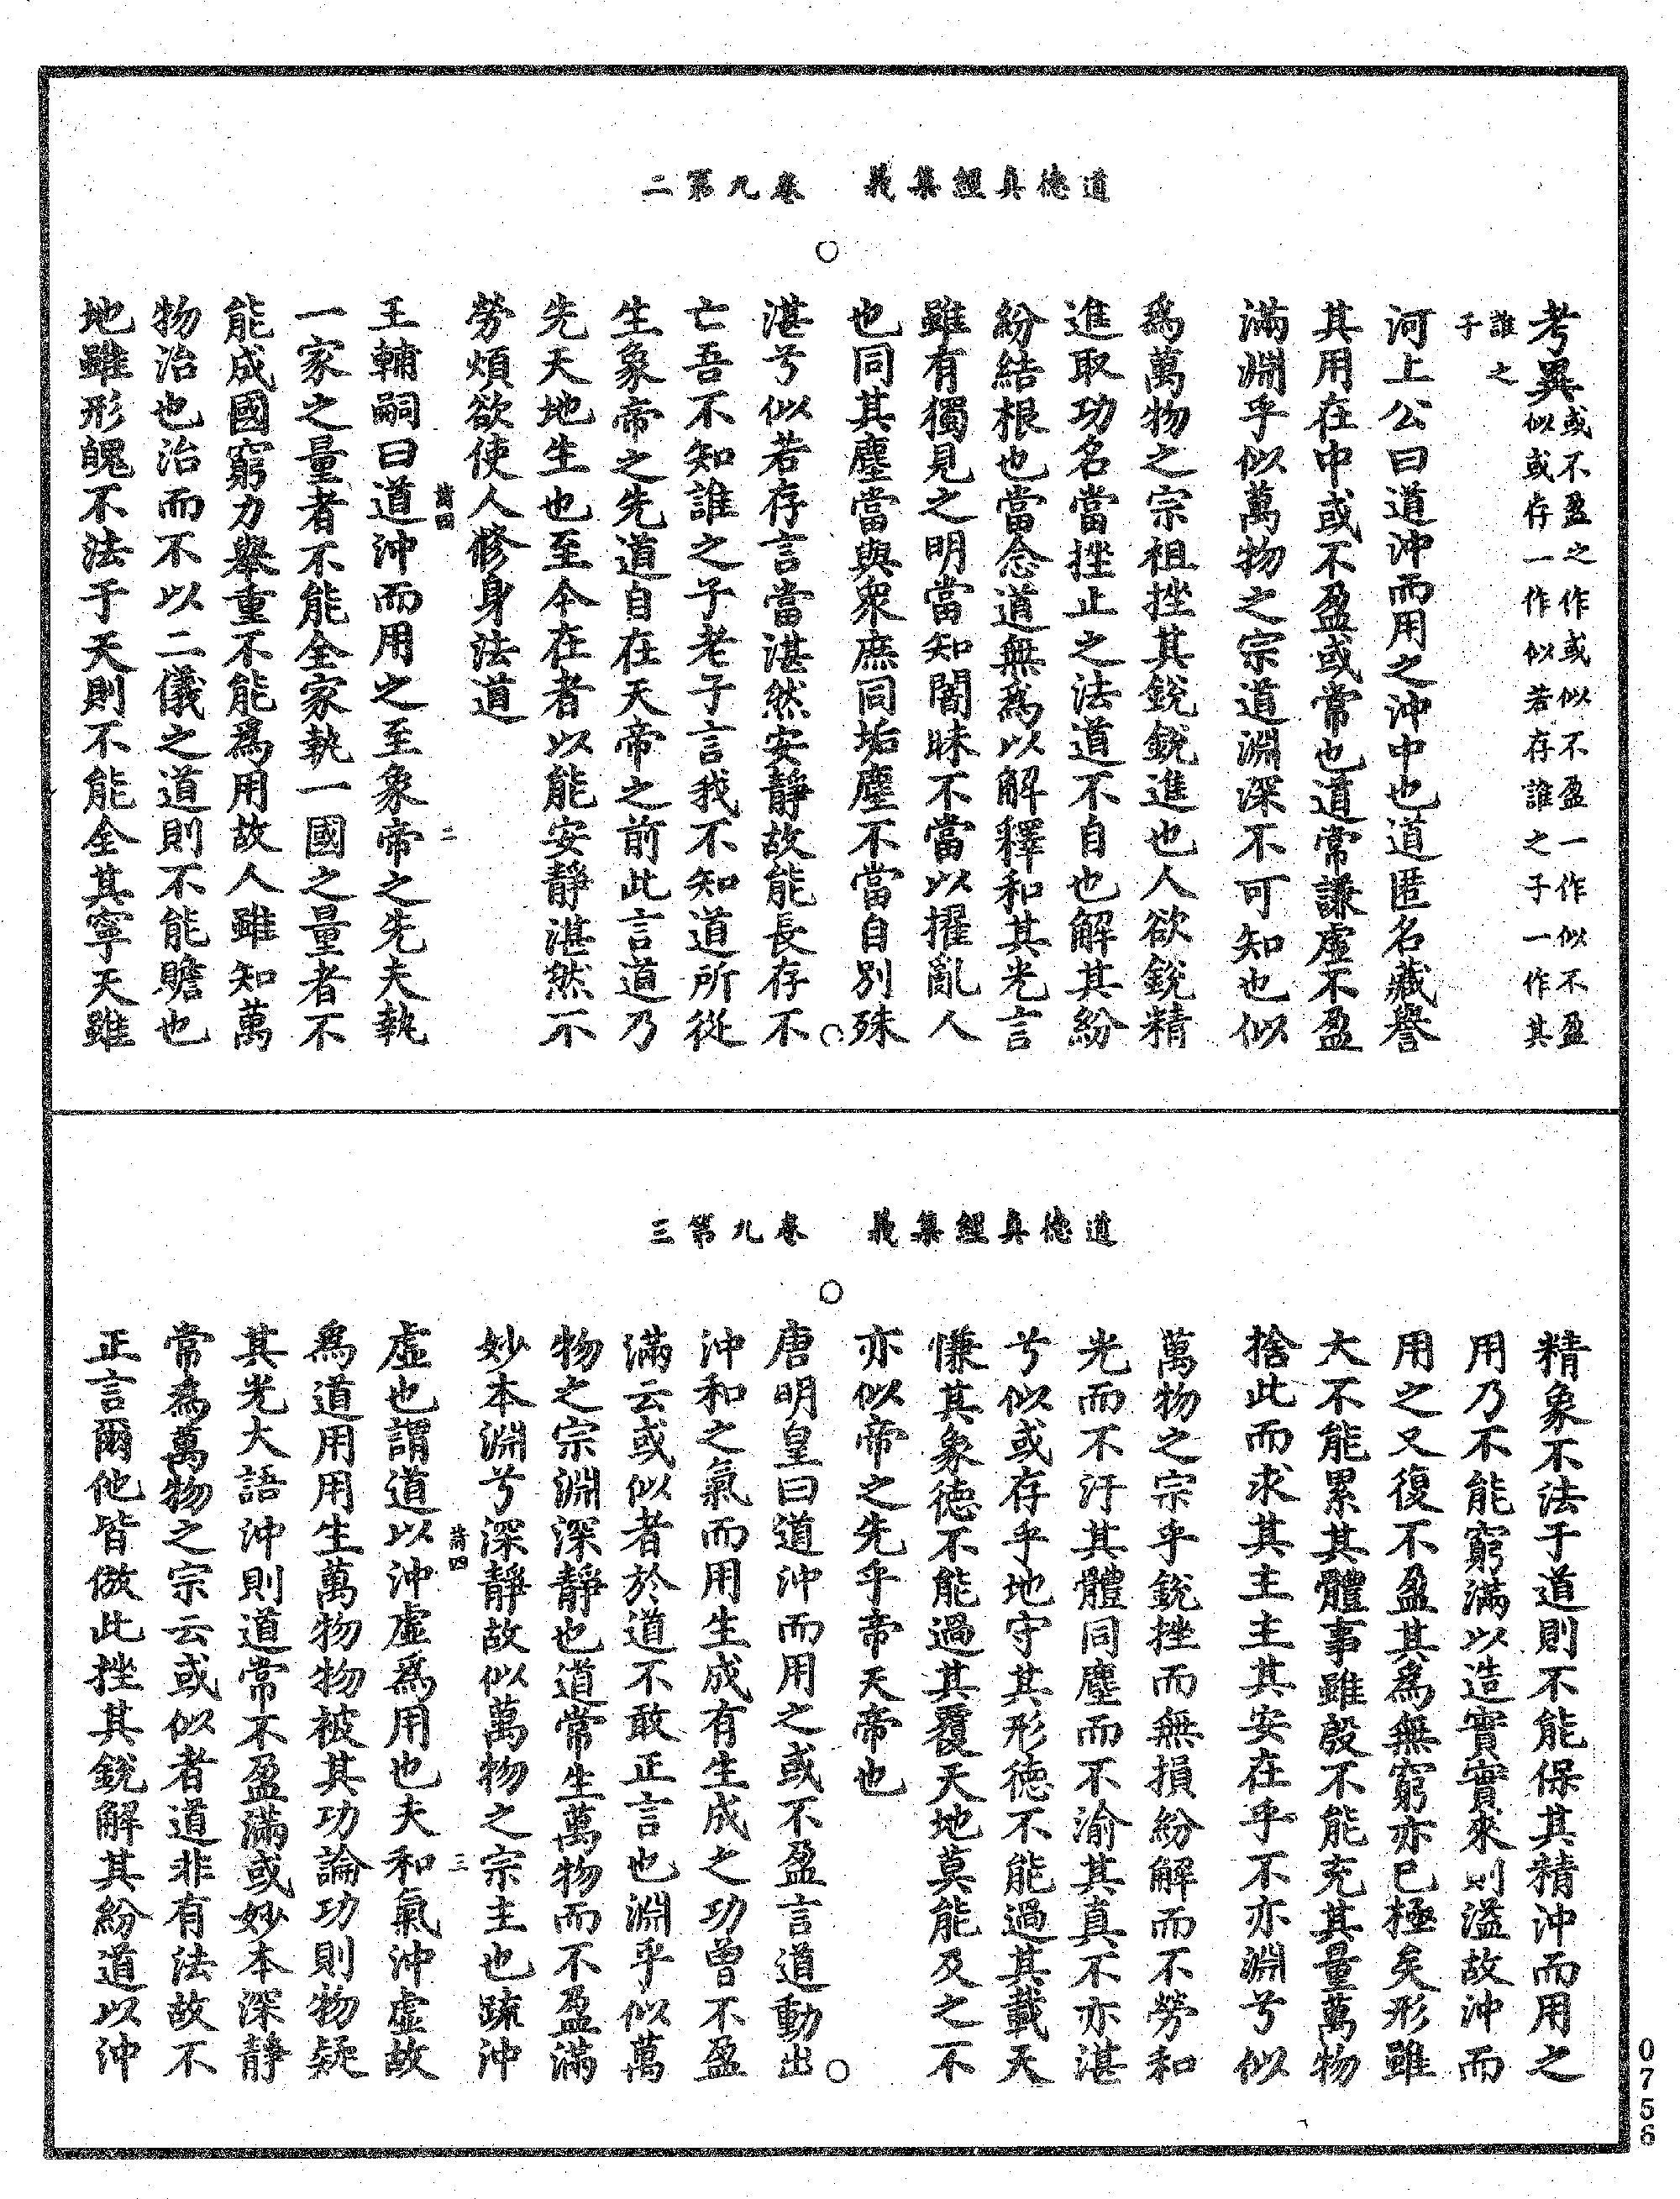 道德真經集義　卷九第二
考異或不盈之作或似不盈一作似不盈似或存一作似若存誰之子一作其
誰之子
河上公曰道沖而用之沖中也道匿名藏譽
其用在中或不盈或常也道常謙虛不盈
滿淵乎似萬物之宗道淵深不可知也似
爲萬物之宗祖挫其銳銳進也人欲銳精
進取功名當挫止之法道不自也解其紛
紛結根也當念道無爲以解釋和其光言
雖有獨見之明當知闇昧不當以擢亂人
也同其塵當與衆庶同垢塵不當自別殊
湛兮似若存言當湛然安靜故能長存不
亡吾不知誰之子老子言我不知道所從
生象帝之先道自在天帝之前此言道乃
先天地生也至今在者以能安靜湛然不
勞煩欲使人修身法道
王輔嗣曰道沖而用之至象帝之先夫執
一家之量者不能全家執一國之量者不
能成國窮力舉重不能爲用故人雖知萬
物治也治而不以二儀之道則不能贍也
地雖形魄不法于天則不能全其寧天雖
道德真經集義　卷九第三
精象不法于道則不能保其精沖而用之
用乃不能窮滿以造實實來則溢故沖而
用之又復不盈其爲無窮亦已極矣形雖
大不能累其體事雖殷不能充其量萬物
捨此而求其主主其安在乎不亦淵兮似
萬物之宗乎銳挫而無損紛解而不勞和
光而不汙其體同塵而不渝其真不亦湛
兮似或存乎地守其形德不能過其載天
慊其象德不能過其覆天地莫能及之不
亦似帝之先乎帝天帝也
唐明皇曰道沖而用之或不盈言道動出
沖和之氣而用生成有生成之功曾不盈
滿云或似者於道不敢正言也淵乎似萬
物之宗淵深靜也道常生萬物而不盈滿
妙本淵兮深靜故似萬物之宗主也疏沖
虛也謂道以沖虛爲用也夫和氣沖虛故
爲道用用生萬物物被其功論功則物疑
其光大語沖則道常不盈滿或妙本深靜
常爲萬物之宗云或似者道非有法故不
正言爾他皆倣此挫其銳解其紛道以沖
0756